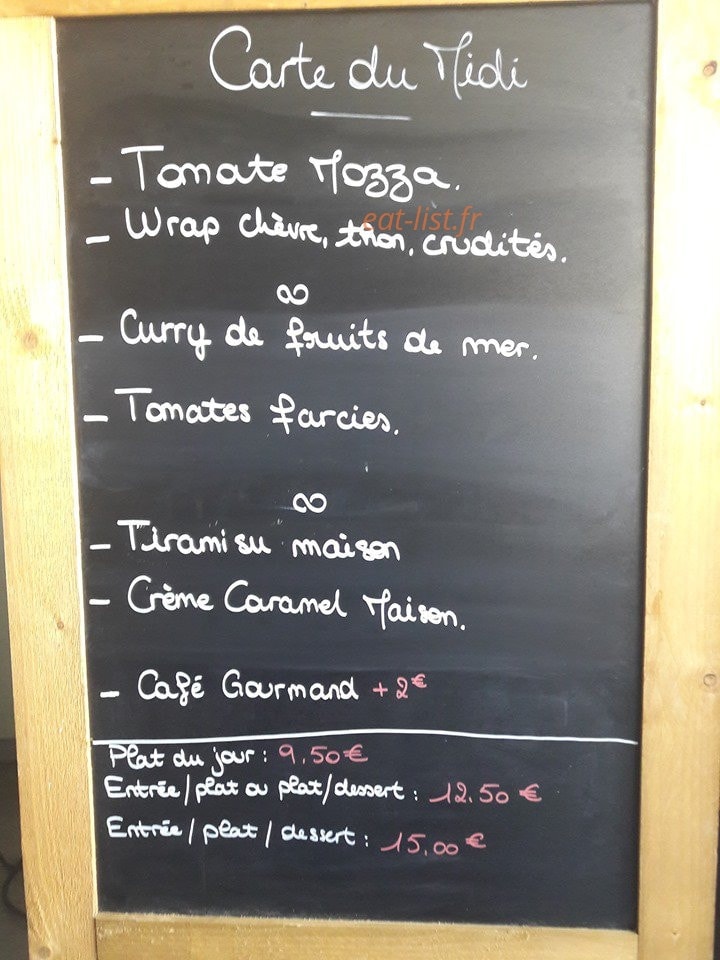 Carte du Midi
- Tomate Mozza.
eat-list.fr
- Wrap chèvre, thon, crudités.
- Curry de fruits de mer.
- Tomates farcies.
- Tiramisu maison
- Crème Caramel Maison.
- Café Gourmand + 2€
Plat du jour : 9.50€
Entrée/plat ou plat/dessert : 12.50 €
Entrée / plat / dessert : 15,00 €